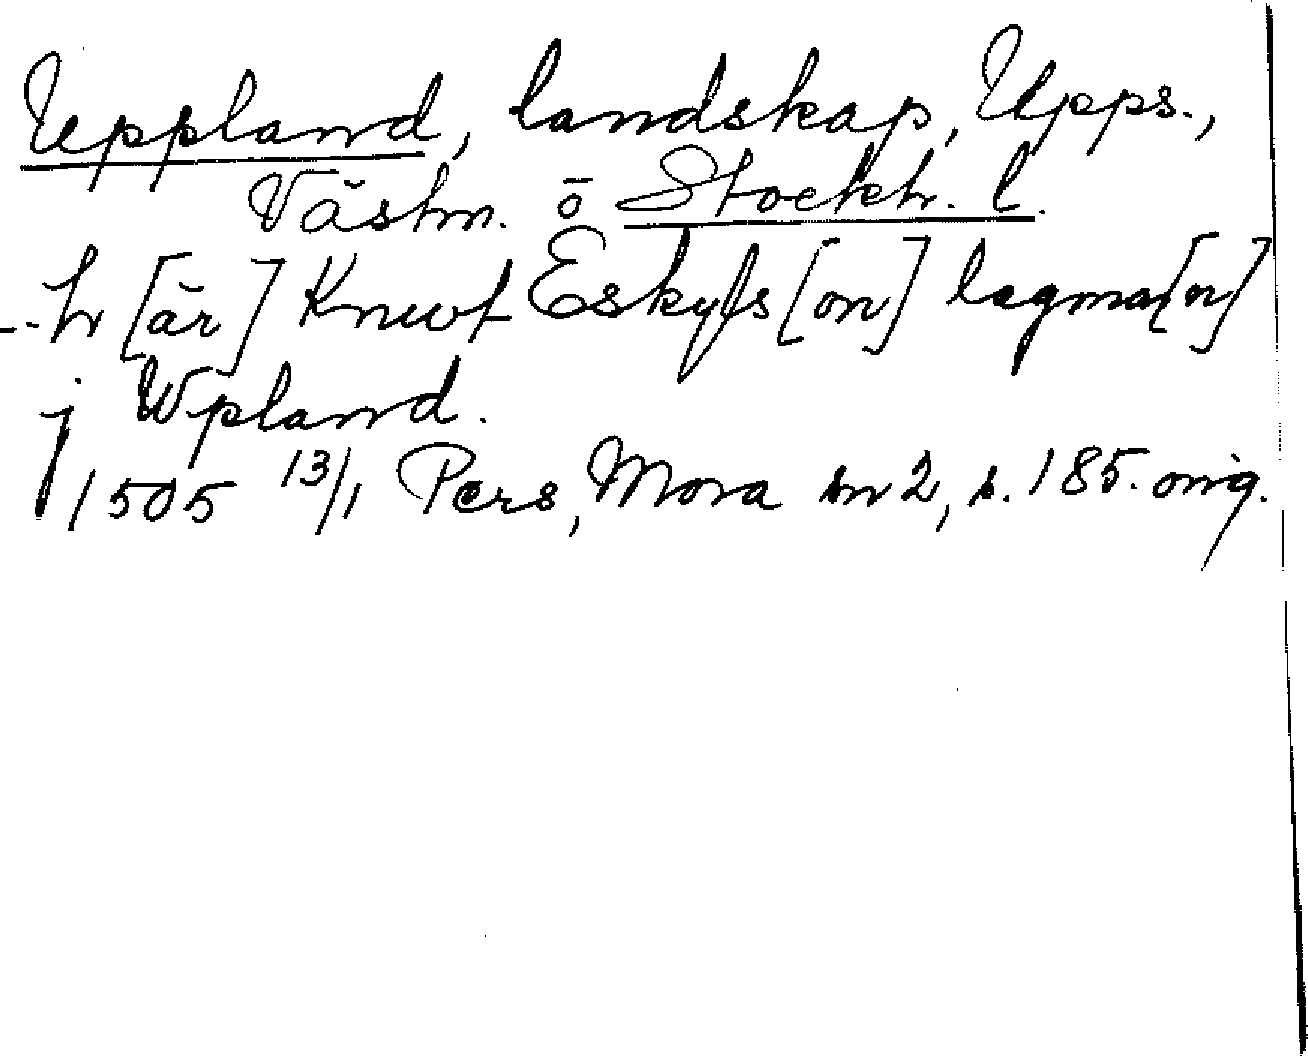 Uppland, landskap, Upps.,
Västm. o Stockh. l.
-- hr [är] Knwt Eskyls[on] lagma[n]
j Wpland.
1505 13/1 Pers, Mora sn 2, s. 185. orig.